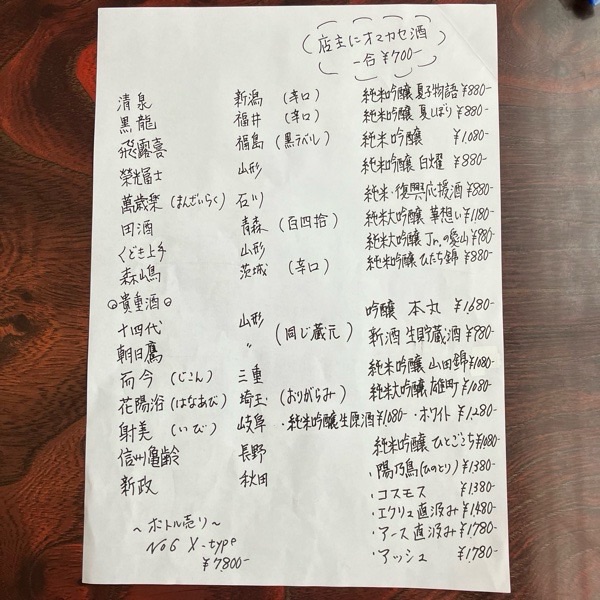 店主にオマカセ酒
一合 ¥700-
清泉 新潟 (辛口) 純米吟醸 夏子物語 ¥880-
黒龍 福井 (辛口) 純米吟醸 夏しぼり ¥880-
飛露喜 福島 (黒ラベル) 純米吟醸 ¥1,080-
榮光冨士 山形 純米吟醸 白燿 ¥880-
萬歳楽 (まんざいらく) 石川 純米・復興応援酒 ¥880-
田酒 青森 (百四拾) 純米大吟醸 華想い ¥1180-
くどき上手 山形 純米大吟醸 Jr.の愛山 ¥980-
森嶋 茨城 (辛口) 純米吟醸 ひたち錦 ¥880-
◎貴重酒◎
十四代 山形 吟醸 本丸 ¥1,680-
朝日鷹 〃 (同じ蔵元) 新酒 生貯蔵酒 ¥980-
而今 (じこん) 三重 純米吟醸 山田錦 ¥1,080-
花陽浴 (はなあび) 埼玉 (おりがらみ) 純米大吟醸 雄町 ¥1,080-
射美 (いび) 岐阜 ・純米吟醸生原酒 ¥1,080- ・ホワイト ¥1,280-
信州亀齢 長野 純米吟醸 ひとごこち ¥1,080-
新政 秋田 ・陽乃鳥 (ひのとり) ¥1380-
・コスモス ¥1380-
・エクリュ 直汲み ¥1,480-
・アース 直汲み ¥1,780-
・アッシュ ¥1,780-
～ボトル売り～
No6 X-type
¥7,800-